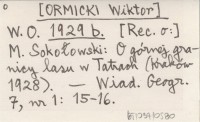 [ORMICKI Wiktor]
W. O. 1929 b. [Rec. o:]
M. Sokołowski: O górnej gra-
nicy lasu w Tatrach (Kraków
1928). — Wiad. Geogr.
7, nr 1: 15-16.